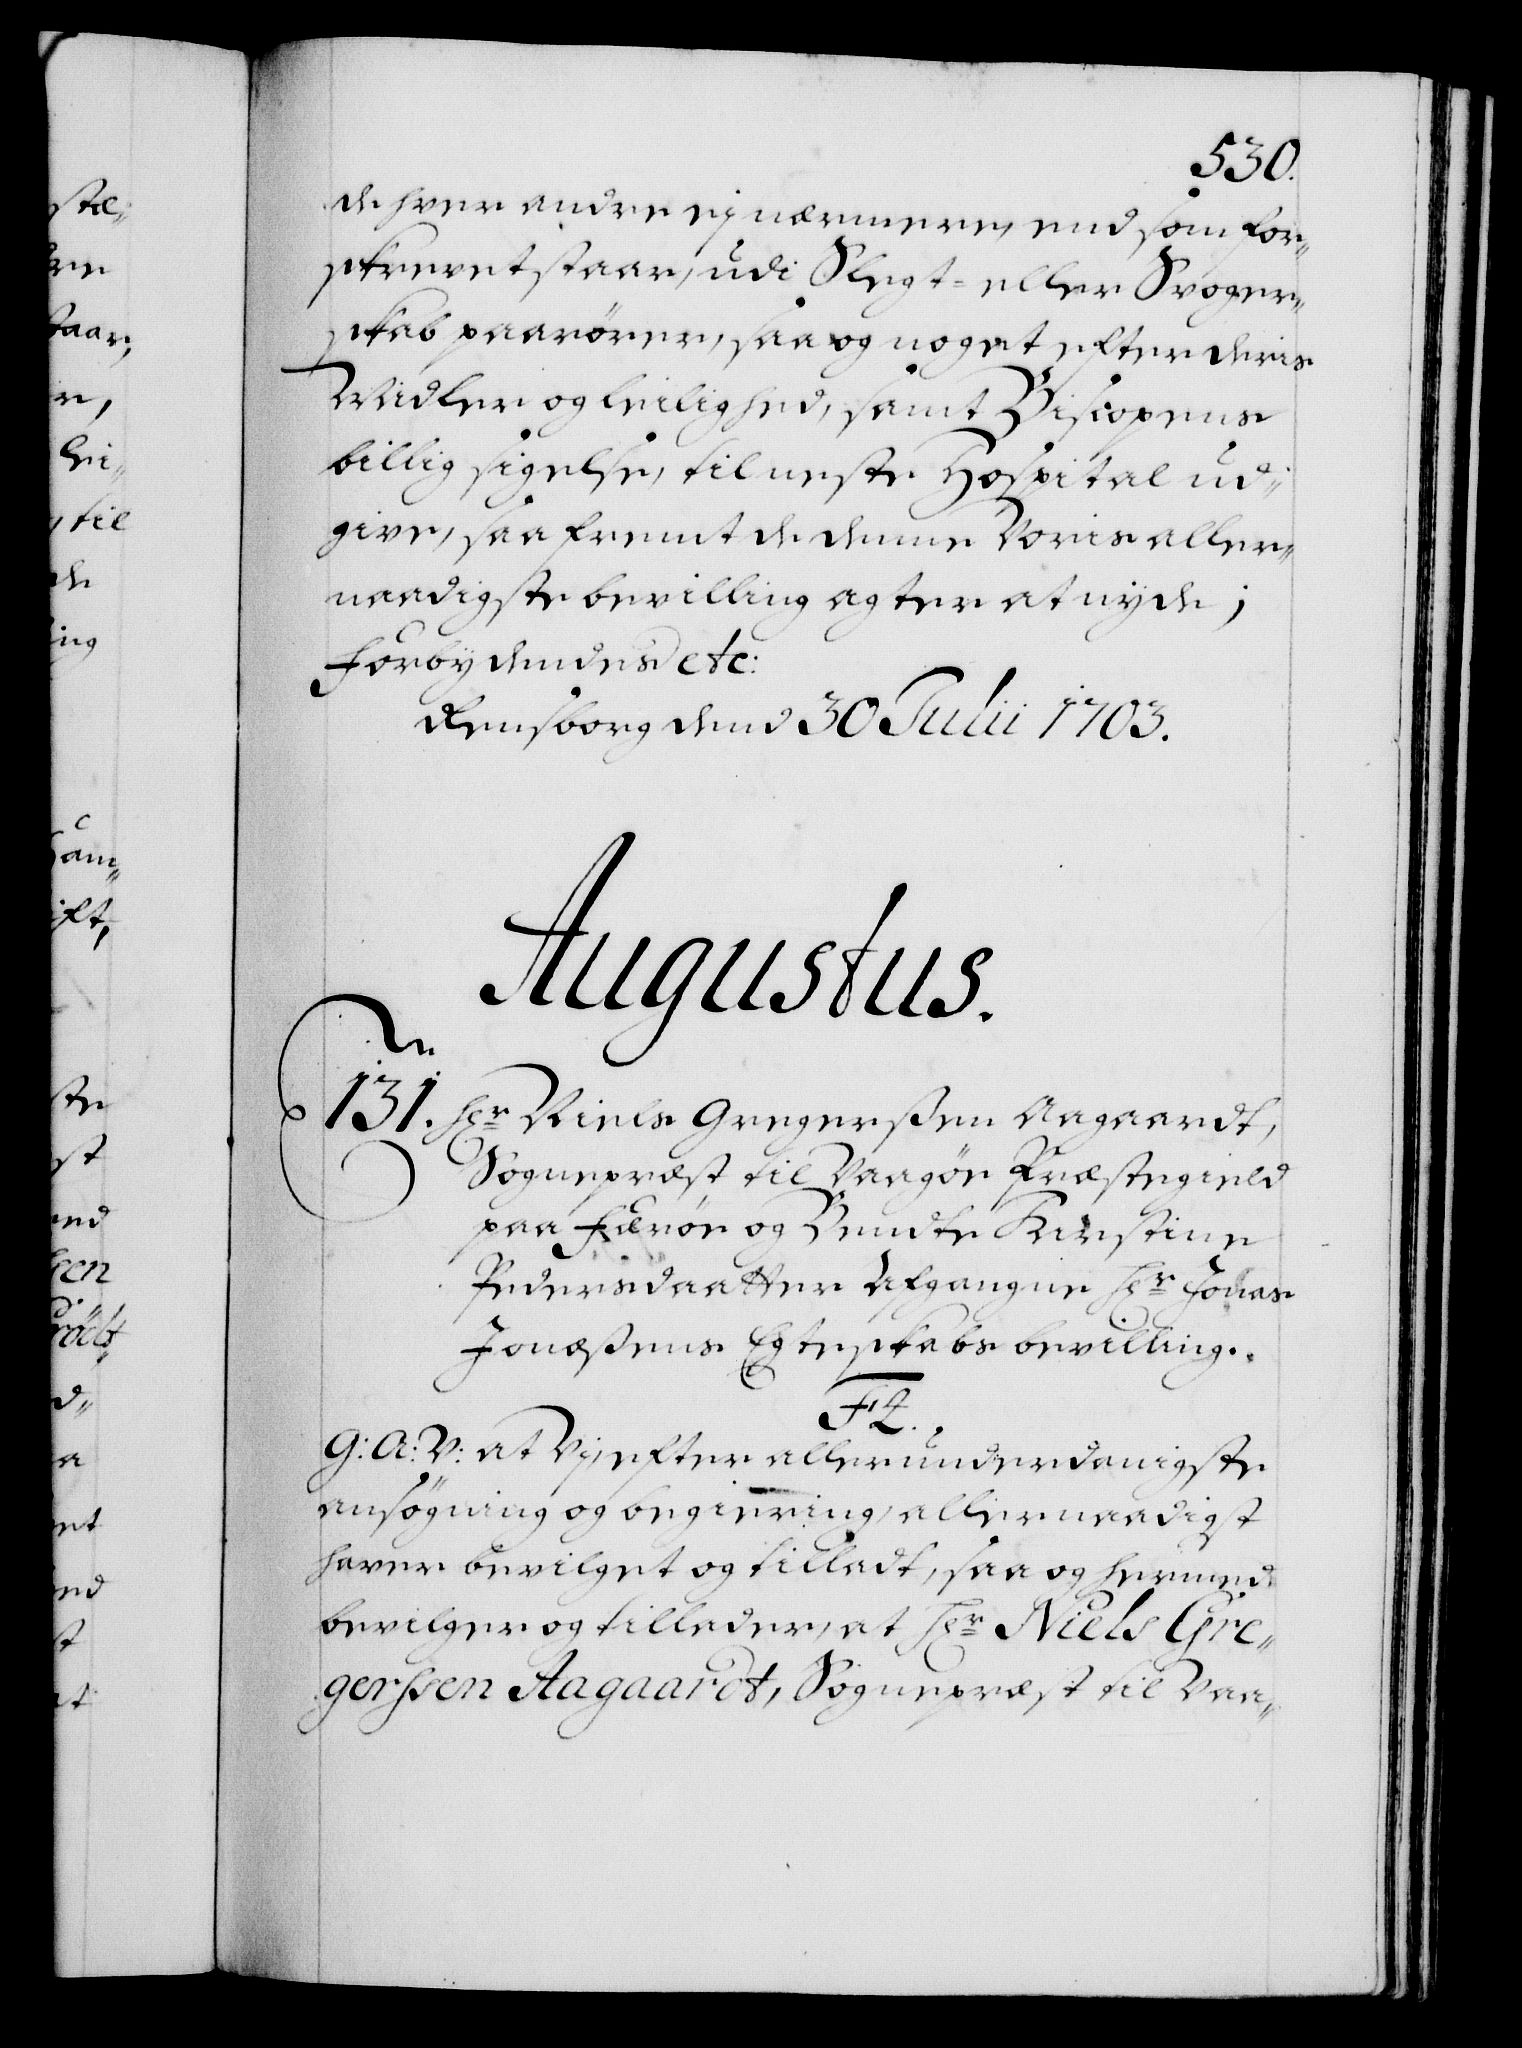 530.
de hver andre ej nærmere, end som for„
skrevet staar, udi Slegt= eller Svoger„
skab paarører, saa og noget efter deris
Midler og leilighed, samt Biscopens
billig sigelse, til neste Hospital ud„
give, saa fremt de denne Voris aller„
naadigste bevilling agter at nyde;
Forbydendes etc:
Rensborg dend 30 Julii 1703.
Augustus.
131. Hr Niels Gregerssen Aagaardt,
Sognepræst til Vaagöe Præstegield
paa Færöe og Bendte Kirstine
Pedersdaatter Afgangne Hr Jonas
Jonæssens Egteskabs bevilling.
F4.
G: A: V: at Vj, efter allerunderdanigste
ansögning og begiering, allernaadigst
haver bevilget og tilladt, saa og hermed
bevilger og tillader, at Hr Niels Gre„
gerssen Aagaardt, Sognepræst til Vaa„